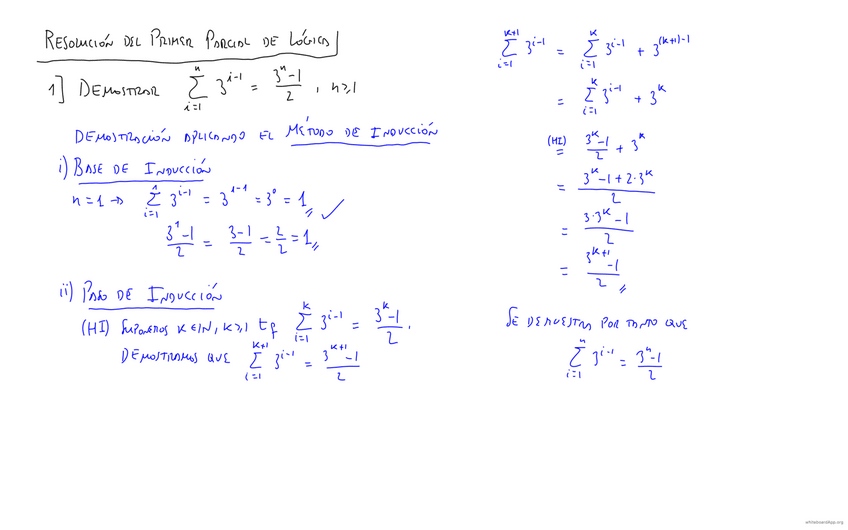 Resolución del Primer Parcial de Lógica
1] Demostrar ∑_{i=1}^{n} 3^{i-1} = (3^n - 1)/2 , n ≥ 1
Demostración aplicando el Método de Inducción
i) Base de Inducción
n = 1 → ∑_{i=1}^{1} 3^{i-1} = 3^{1-1} = 3^0 = 1 ✓
(3^1 - 1)/2 = (3-1)/2 = 2/2 = 1
ii) Paso de Inducción
(HI) Suponemos k ∈ ℕ, k ≥ 1 tq ∑_{i=1}^{k} 3^{i-1} = (3^k - 1)/2 .
Demostramos que ∑_{i=1}^{k+1} 3^{i-1} = (3^{k+1} - 1)/2
∑_{i=1}^{k+1} 3^{i-1} = ∑_{i=1}^{k} 3^{i-1} + 3^{(k+1)-1}
= ∑_{i=1}^{k} 3^{i-1} + 3^k
(HI) = (3^k - 1)/2 + 3^k
= (3^k - 1 + 2·3^k)/2
= (3·3^k - 1)/2
= (3^{k+1} - 1)/2
Se demuestra por tanto que
∑_{i=1}^{n} 3^{i-1} = (3^n - 1)/2
whiteboardApp.org